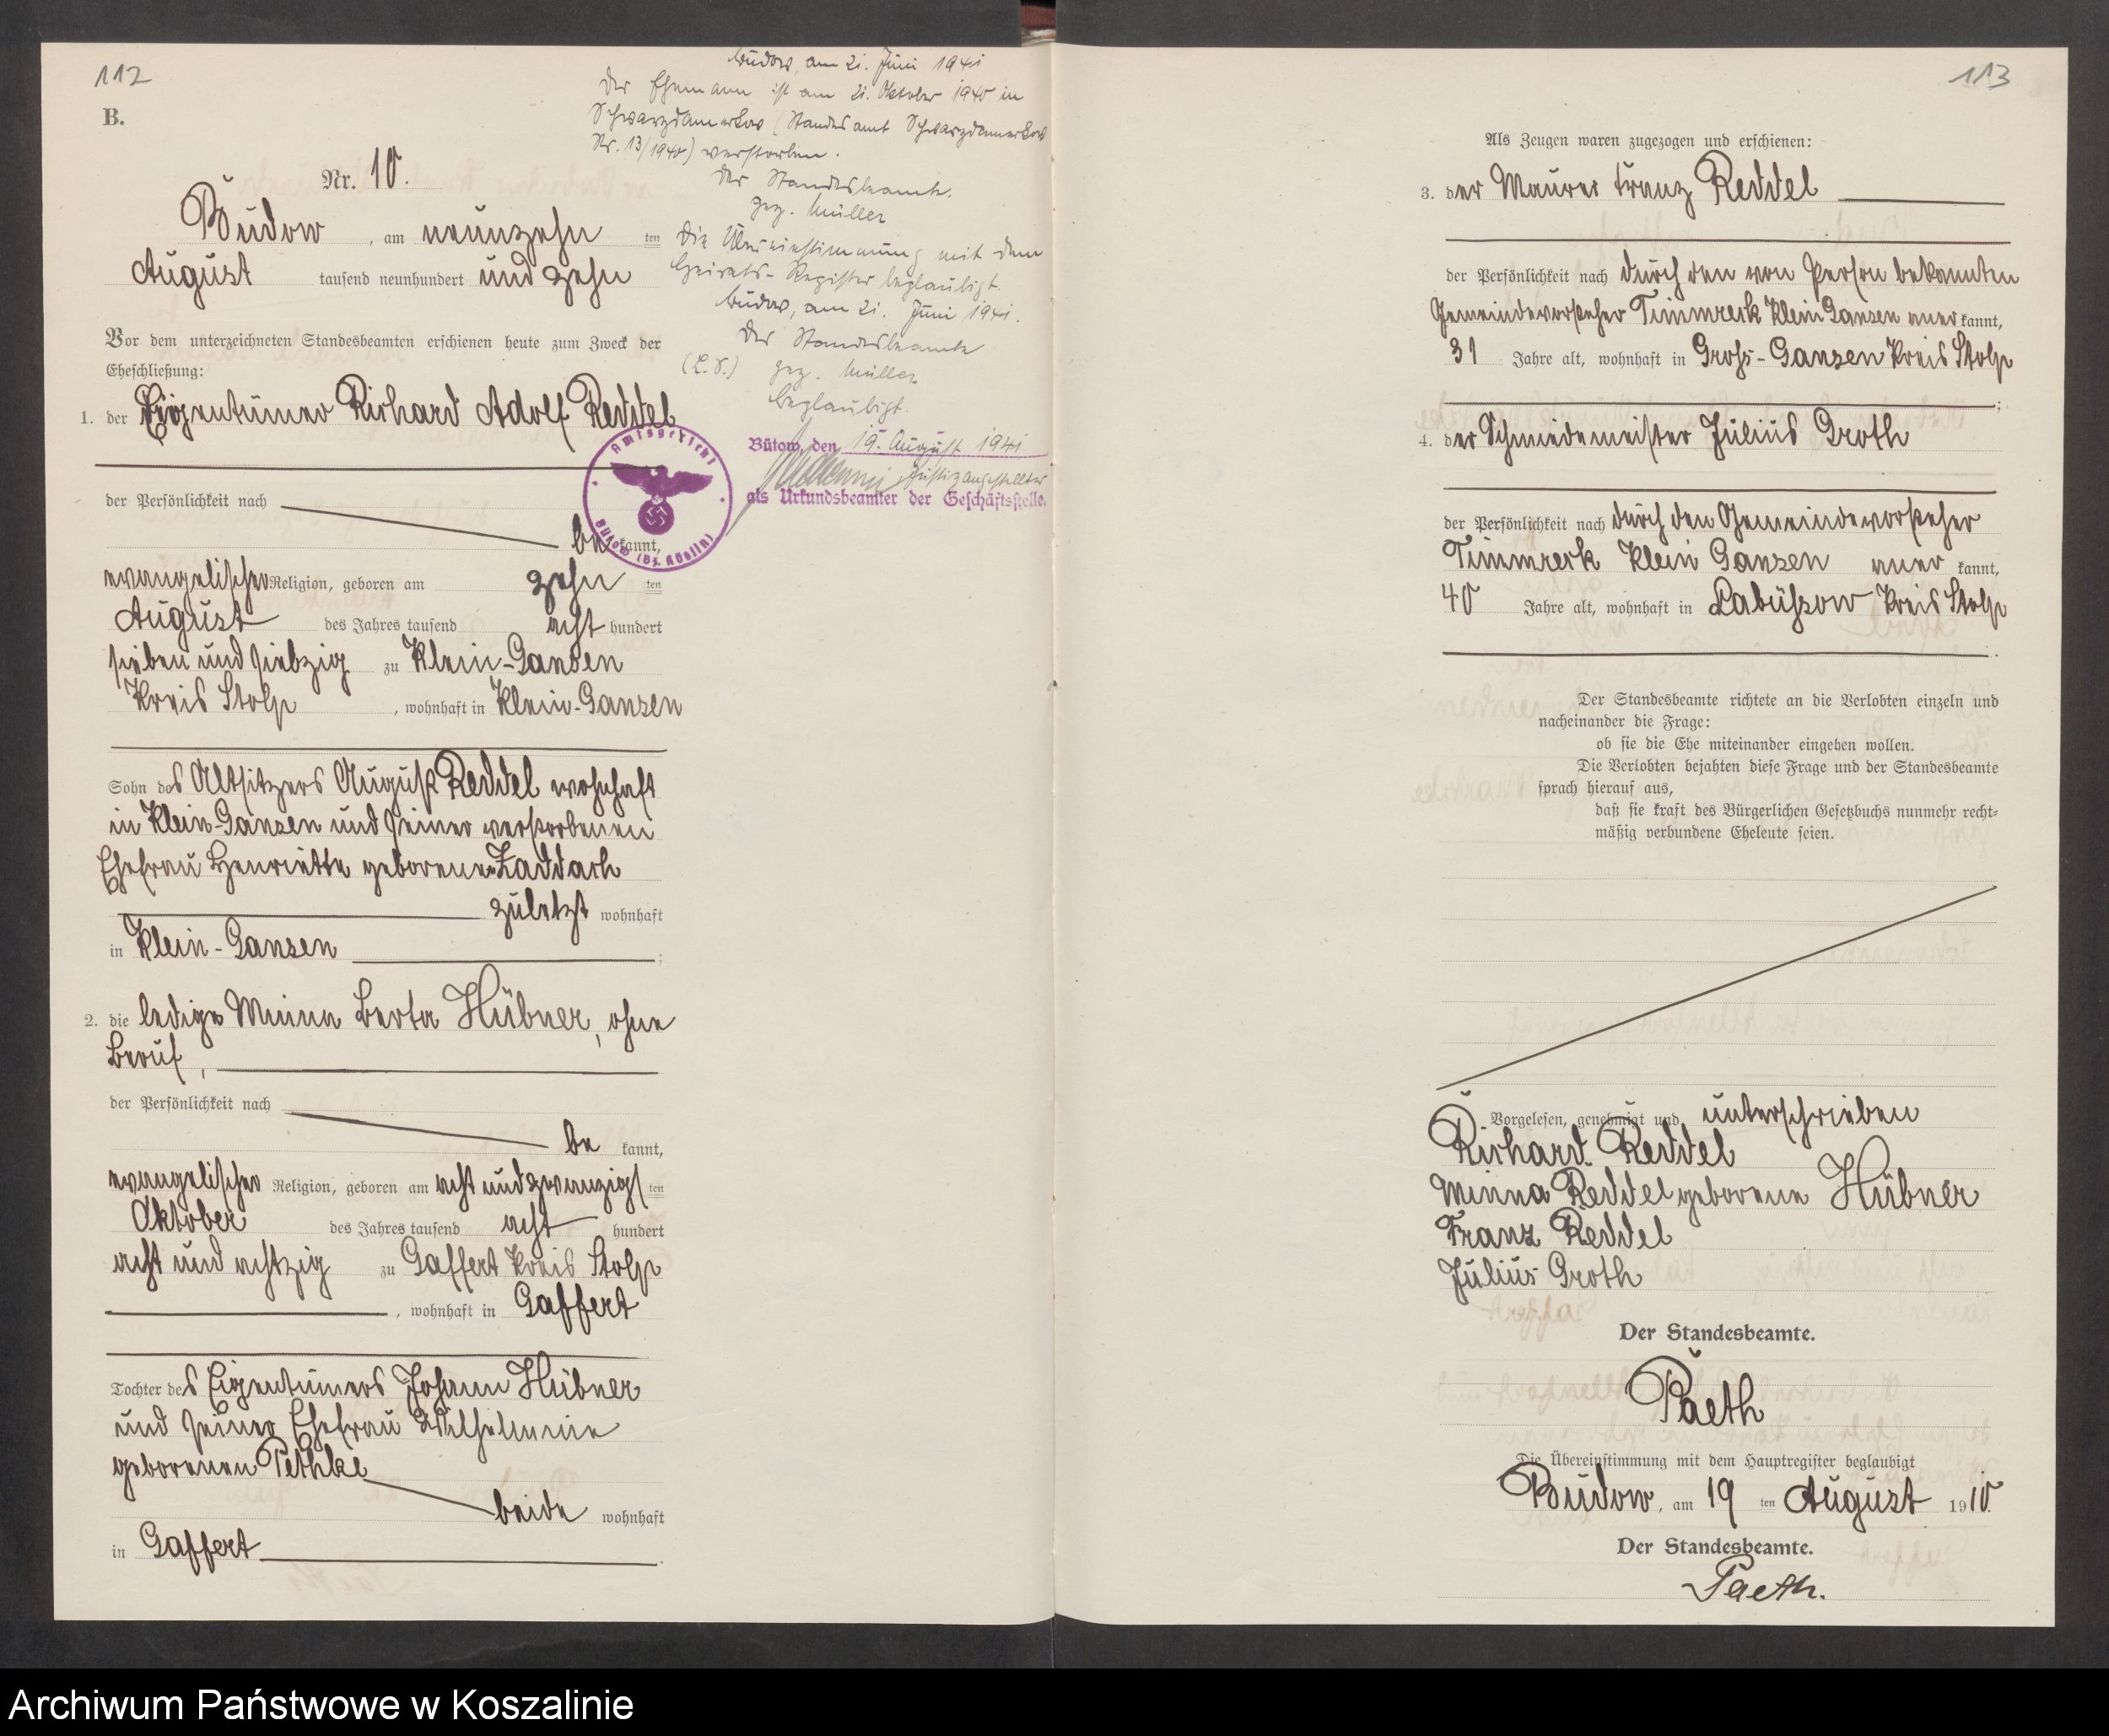 112
B.
Büdow, am 21. Juni 1941
Der Ehemann ist am 21. Oktober 1940 in
Schwarzdamerkow (Standesamt Schwarzdamerkow
Nr. 13/1940) verstorben.
Der Standesbeamte.
gez. Müller
Die Übereinstimmung mit dem
Heirats-Register beglaubigt.
Büdow, am 21. Juni 1941.
Der Standesbeamte
(L.S.) gez. Müller
Beglaubigt.
Bütow, den 19. August 1941
Justizangestellter
als Urkundsbeamter der Geschäftsstelle.
Amtsgericht
Bütow (Bz. Köslin)
Nr. 10.
Büdow, am neunzehn ten
August tausend neunhundert und zehn
Vor dem unterzeichneten Standesbeamten erschienen heute zum Zweck der
Eheschließung:
1. der Eigentümer Richard Adolf Reddel
der Persönlichkeit nach
be kannt,
evangelischer Religion, geboren am zehn ten
August des Jahres tausend acht hundert
sieben und siebzig zu Klein-Gansen
Kreis Stolp, wohnhaft in Klein-Gansen
Sohn des Altsitzers August Reddel wohnhaft
in Klein-Gansen und seiner verstorbenen
Ehefrau Henriette geborenen Zaddach
zuletzt wohnhaft
in Klein-Gansen;
2. die ledige Minna Berta Hübner, ohne
Beruf,
der Persönlichkeit nach
be kannt,
evangelischer Religion, geboren am acht und zwanzigsten
Oktober des Jahres tausend acht hundert
acht und achtzig zu Gaffert Kreis Stolp
, wohnhaft in Gaffert
Tochter des Eigentümers Johann Hübner
und seiner Ehefrau Wilhelmine
geborenen Pethke
beide wohnhaft
in Gaffert.
113
Als Zeugen waren zugezogen und erschienen:
3. der Maurer Franz Reddel
der Persönlichkeit nach durch den von Person bekannten
Gemeindevorsteher Timmreck Klein Gansen aner kannt,
31 Jahre alt, wohnhaft in Groß-Gansen Kreis Stolp
;
4. der Schmiedemeister Julius Groth
der Persönlichkeit nach durch den Gemeindevorsteher
Timmreck Klein Gansen aner kannt,
40 Jahre alt, wohnhaft in Labüssow Kreis Stolp
.
Der Standesbeamte richtete an die Verlobten einzeln und
nacheinander die Frage:
ob sie die Ehe miteinander eingehen wollen.
Die Verlobten bejahten diese Frage und der Standesbeamte
sprach hierauf aus,
daß sie kraft des Bürgerlichen Gesetzbuchs nunmehr recht-
mäßig verbundene Eheleute seien.
Vorgelesen, genehmigt und unterschrieben
Richard Reddel
Minna Reddel geborene Hübner
Franz Reddel
Julius Groth
Der Standesbeamte.
Paeth
Die Übereinstimmung mit dem Hauptregister beglaubigt
Büdow, am 19 ten August 1910.
Der Standesbeamte.
Paeth.
Archiwum Państwowe w Koszalinie